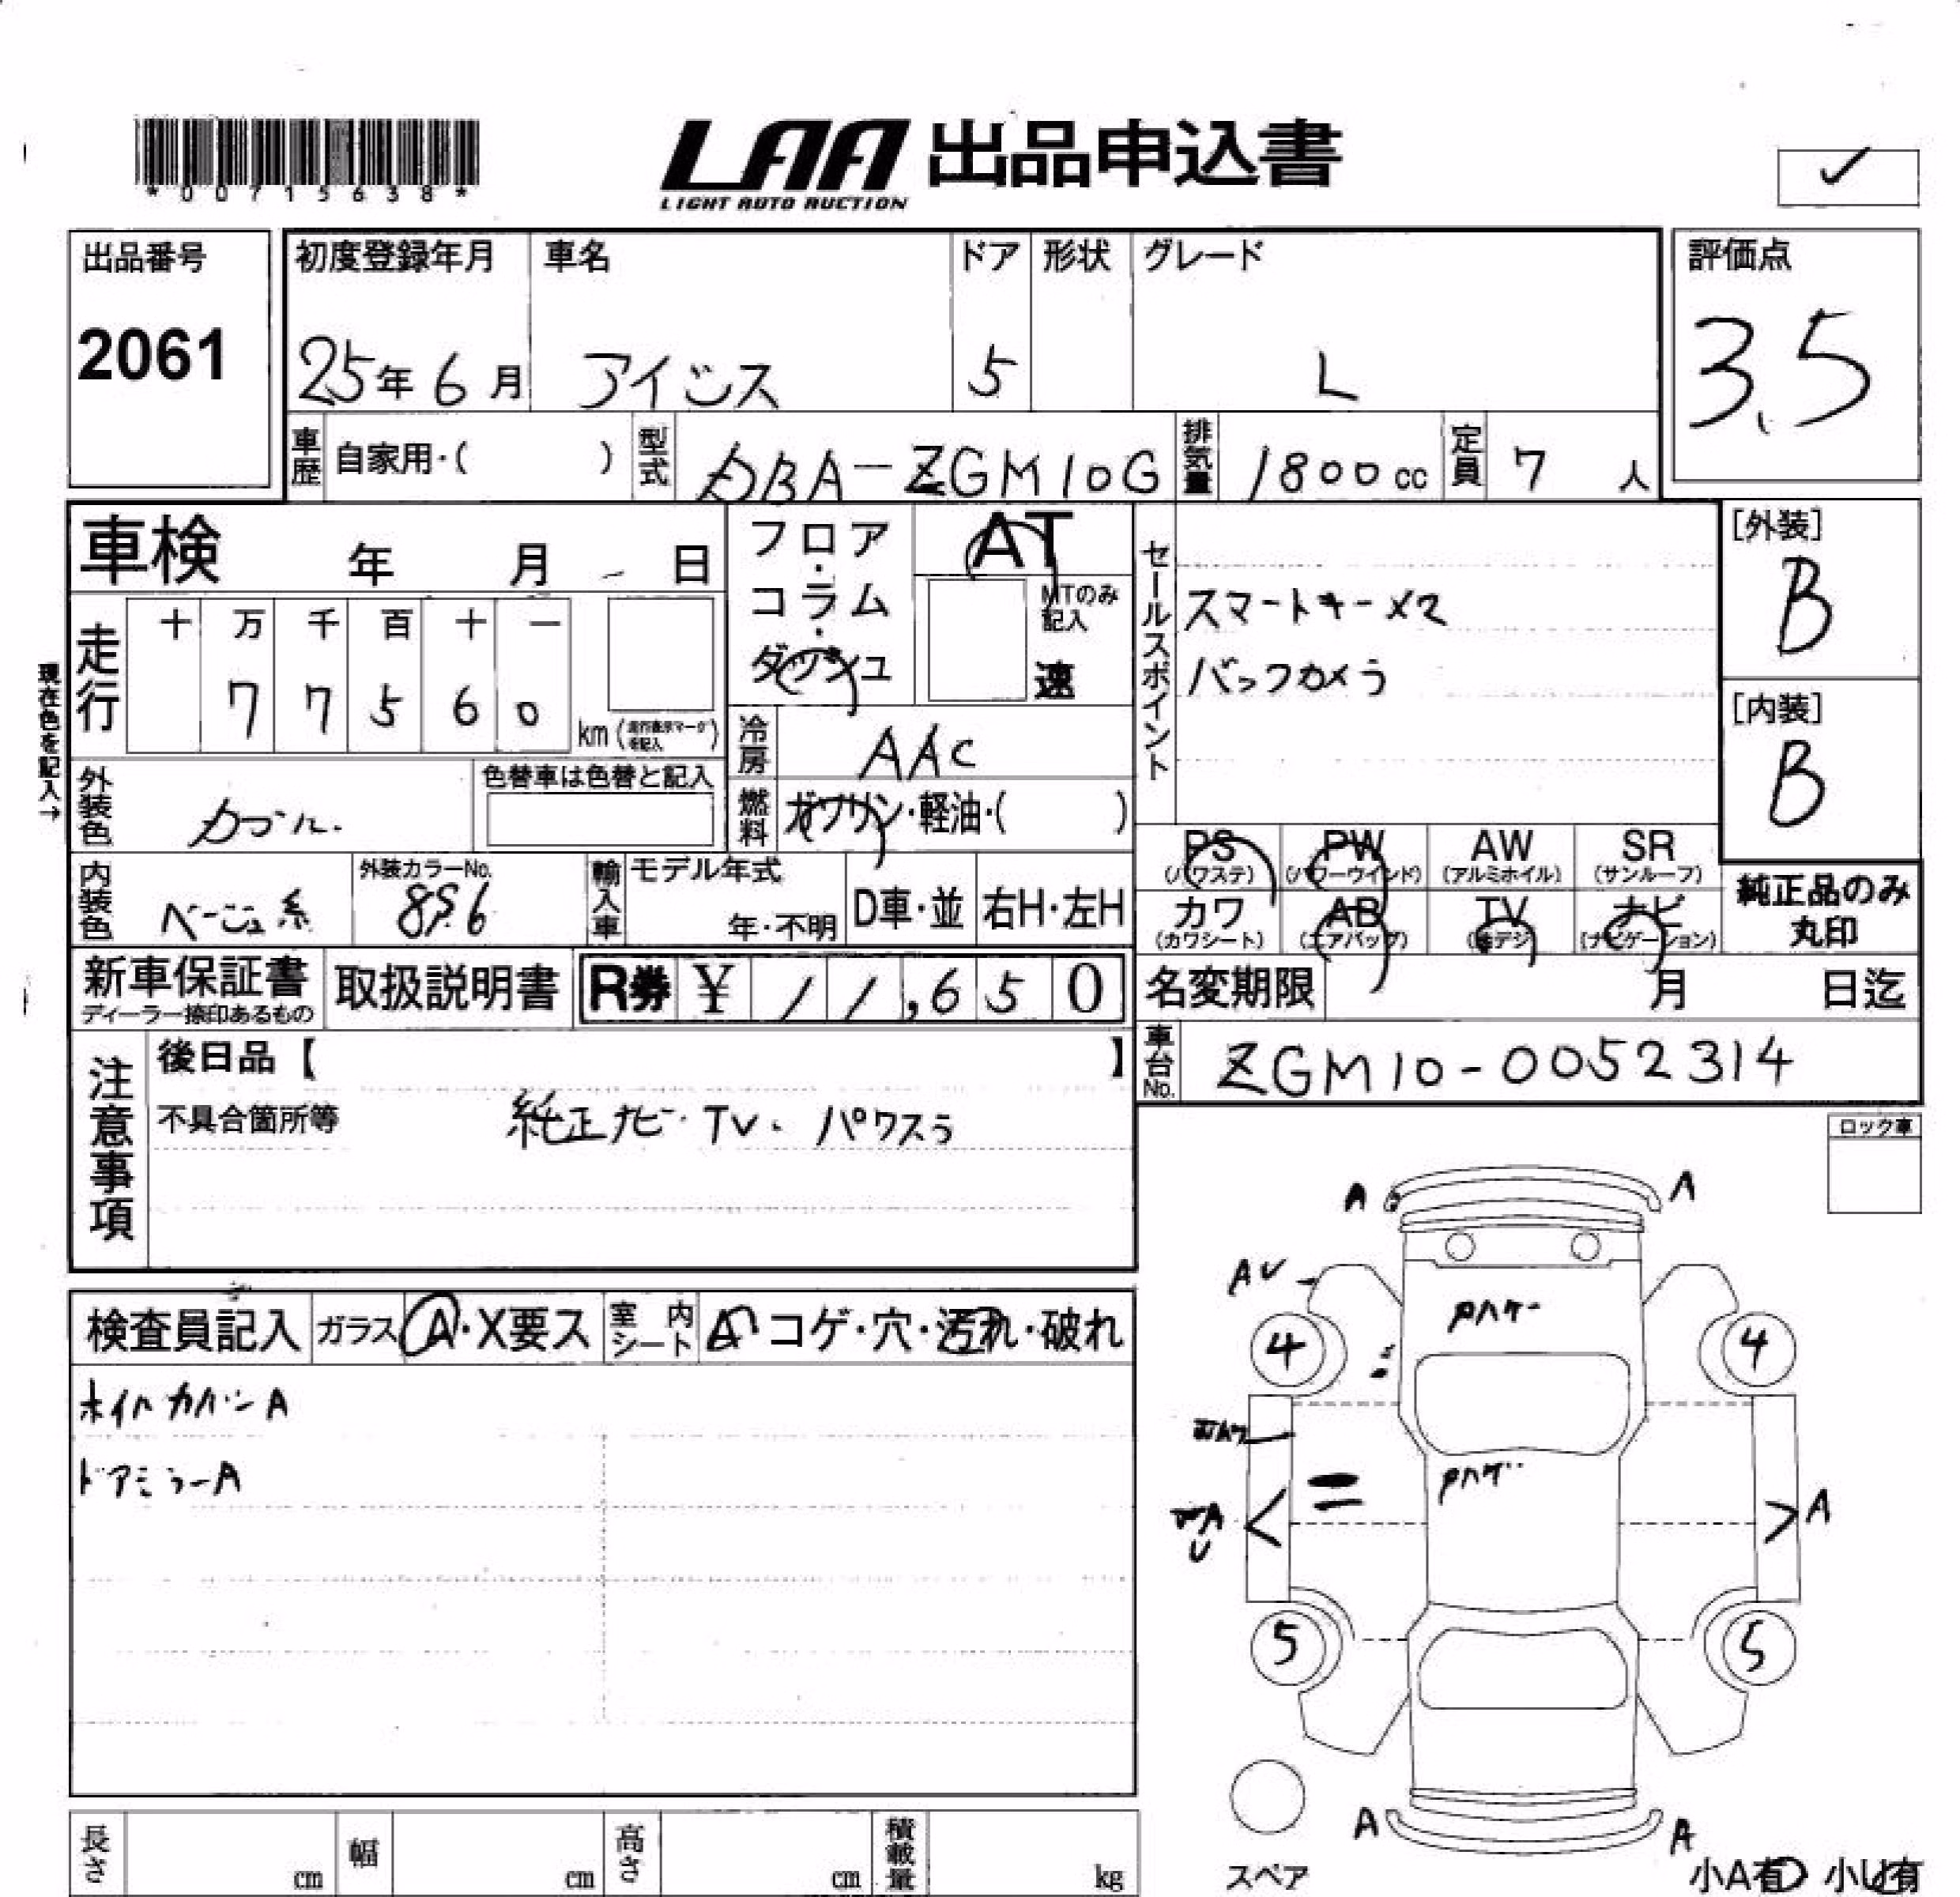 *00715638*
LAA 出品申込書
LIGHT AUTO AUCTION
出品番号
2061
初度登録年月
25年 6月
車名
アイシス
ドア
5
形状
グレード
L
評価点
3.5
車歴 自家用・( )
型式 DBA-ZGM10G
排気量 1800cc
定員 7 人
車検 年 月 日
フロア・コラム・ダッシュ
AT
MTのみ記入
速
セールスポイント
スマートキー×2
バックカメラ
[外装]
B
[内装]
B
現在色を記入→
走行
十 万 千 百 十 一
7 7 5 6 0
km(
を記入
)
冷房 AAC
燃料 ガソリン・軽油・( )
外装色
色替車は色替と記入
内装色 ベージュ系
外装カラーNo.
輸入車
モデル年式
年・不明
D車・並
右H・左H
PS
(パワステ)
PW
(パワーウインド)
AW
(アルミホイル)
SR
(サンルーフ)
カワ
(カワシート)
AB
(エアバッグ)
TV
(地デジ)
ナビ
(ナビゲーション)
純正品のみ
丸印
新車保証書
ディーラー捺印あるもの
取扱説明書
R券 ¥ 11,650
名変期限 月 日迄
車台No. ZGM10-0052314
注意事項
後日品【 】
不具合箇所等
純正ナビ・TV・パワスラ
ロック車
検査員記入
ガラス A・X要ス
室内シート A・コゲ・穴・汚れ・破れ
ホイルカバーA
ドアミラーA
A A
AU
4 4
A
U
A
5 5
A A
スペア
小A有 小U有
長さ cm
幅 cm
高さ cm
積載量 kg